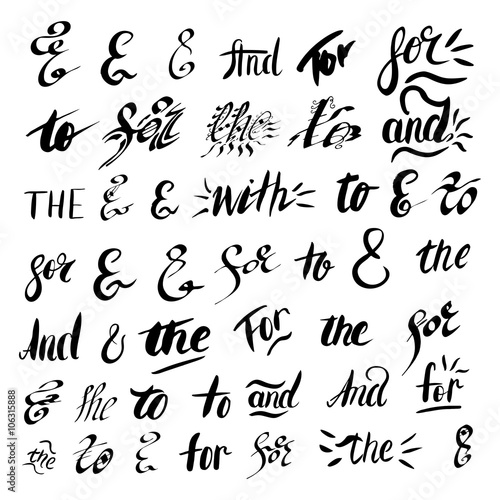 & & & And For for
to for the to and
THE & & with to & to
for & & for to & the
And & the For the for
& the to to and And for
the to & for for the &
Adobe Stock | #106315888